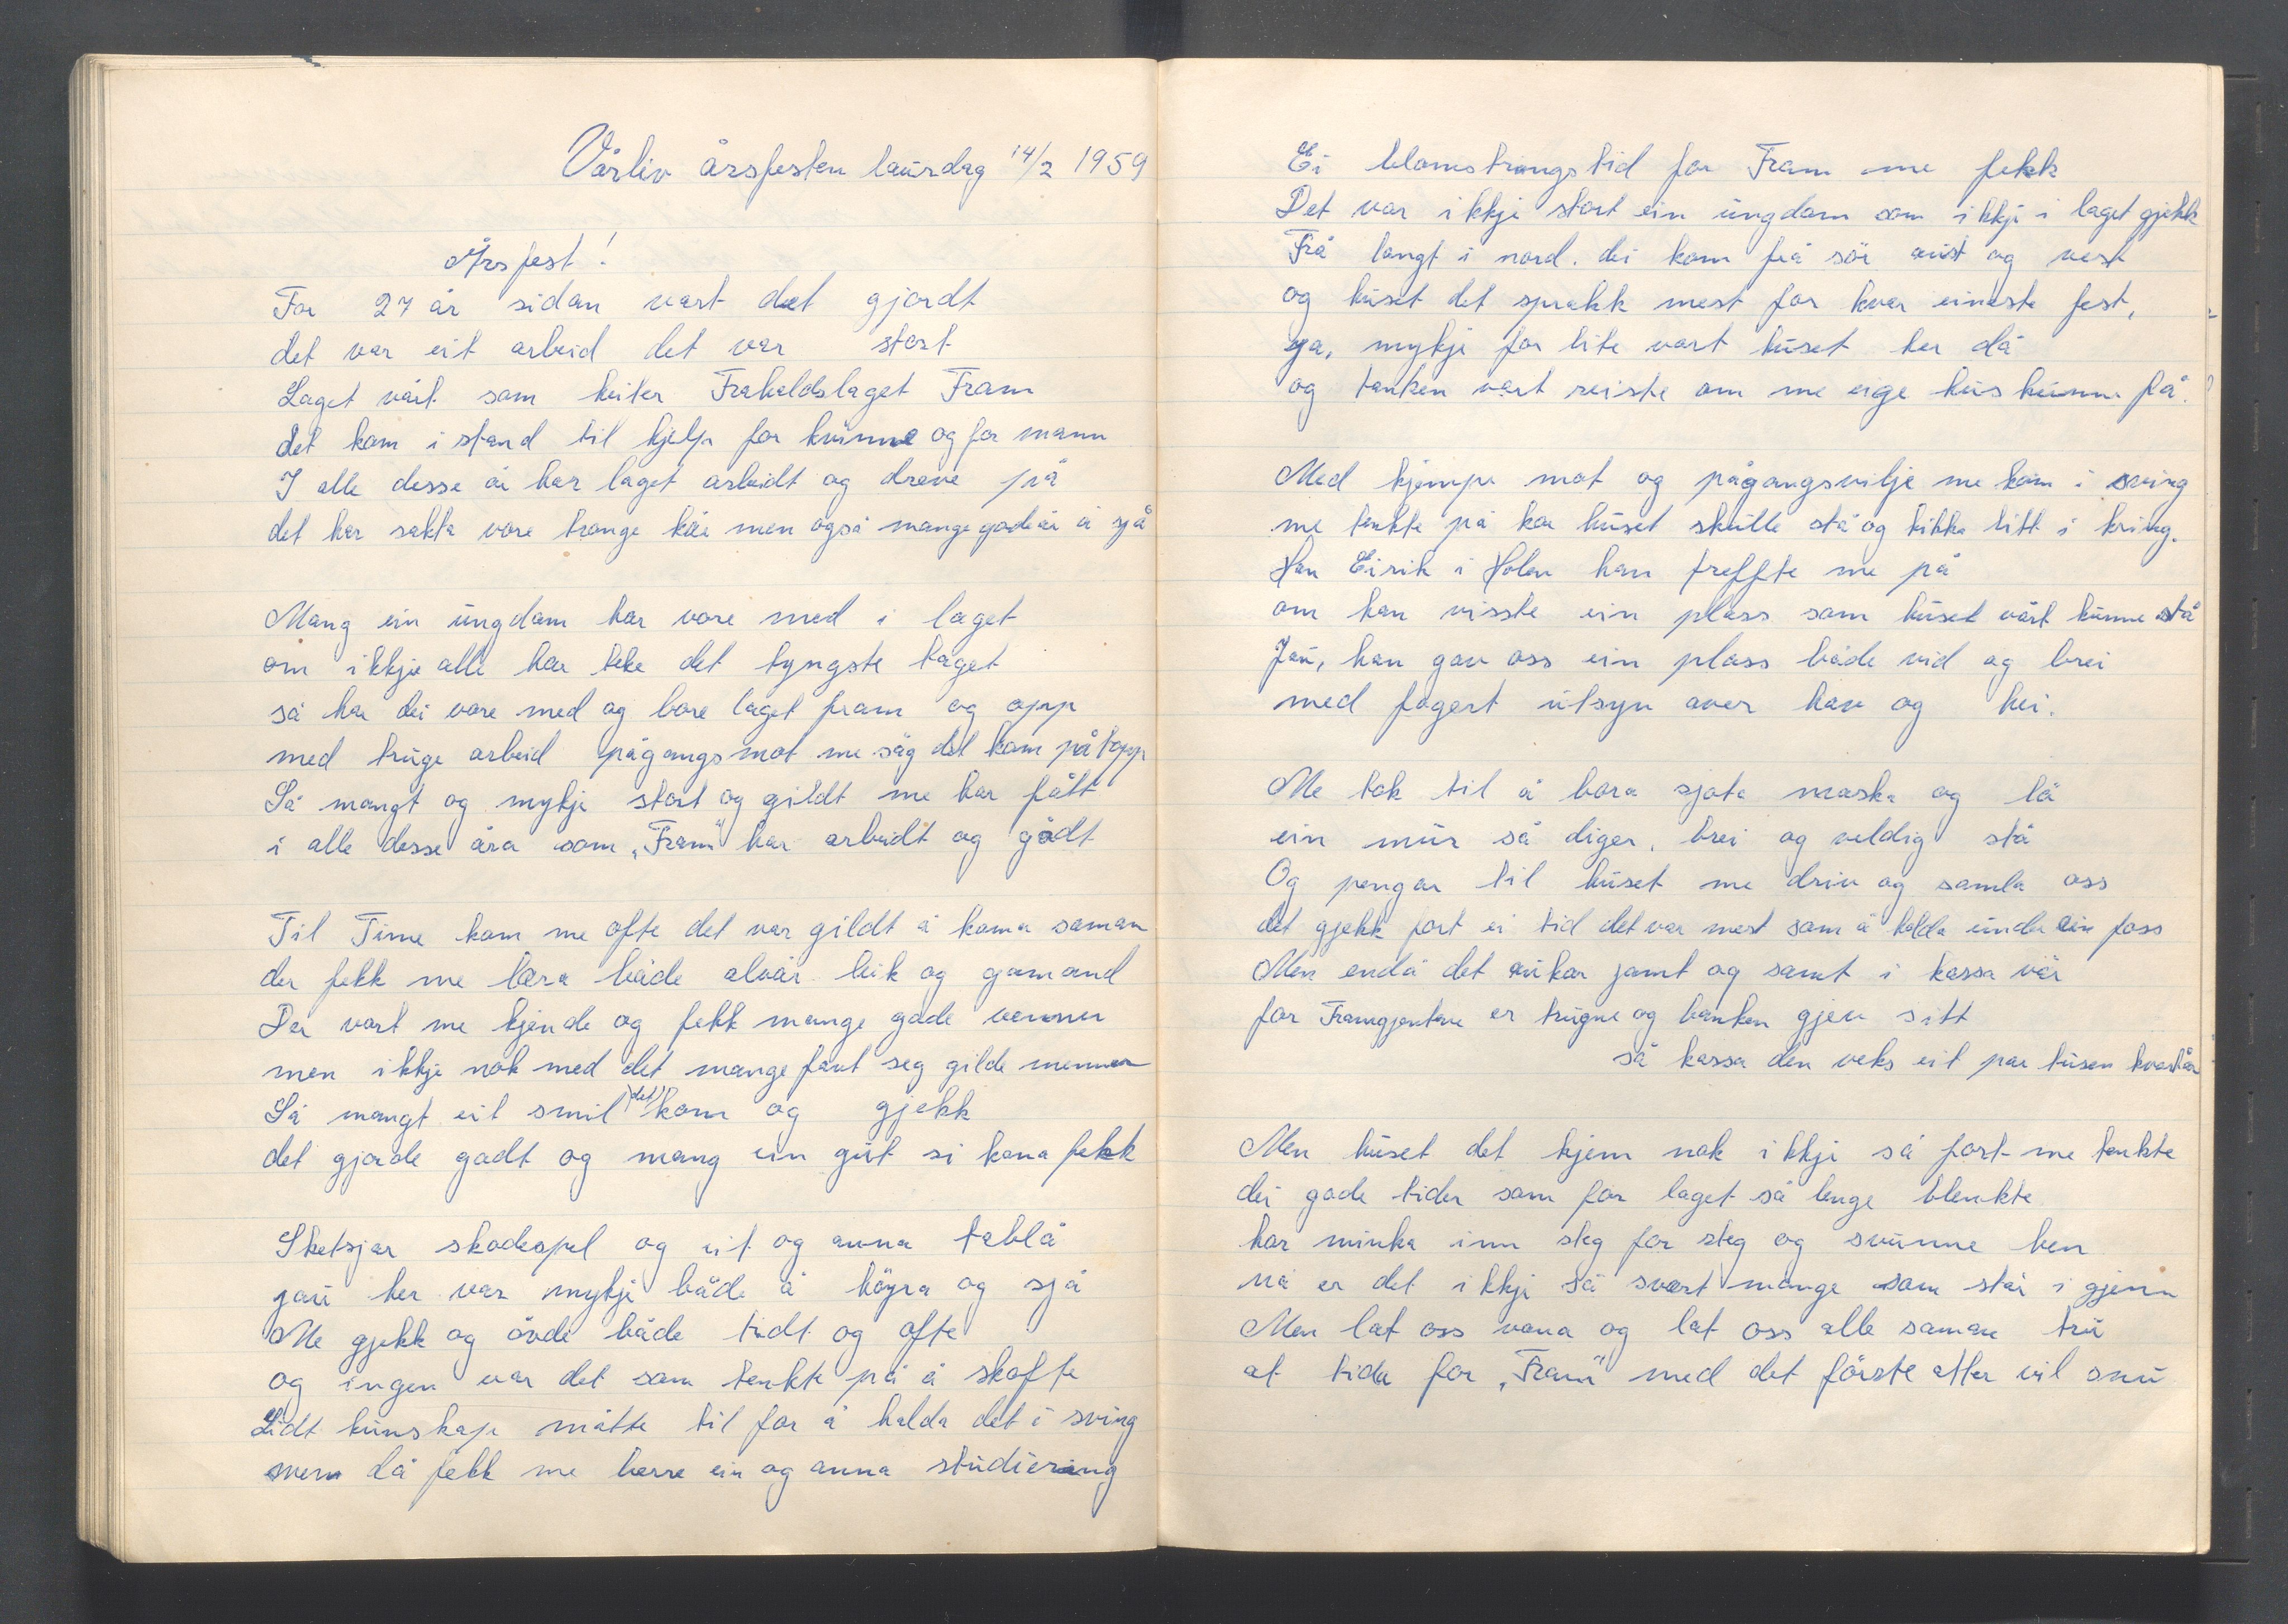 Vårliv årsfesten laurdag 14/2 1959
Årsfest!
For 27 år sidan vart det gjordt
det var eit arbeid det var stort
Laget vårt som heiter Fråhaldslaget Fram
det kom i stand til hjelp for kvinne og for mann
I alle desse år har laget arbeidt og dreve på
det har sakta vore trange kår men også mange gode år å sjå
Mang ein ungdom har vore med i laget
om ikkje alle har teke det tyngste taget
så har dei vore med og bore laget fram og opp
med truge arbeid pågangsmot me såg det kom på topp
Så mangt og mykje stort og gildt me har fått
i alle desse åra som "Fram" har arbeidt og gådt
Til Time kom me ofte det var gildt å koma saman
der fekk me læra både alvår leik og gamand
Der vart me kjende og fekk mange gode venner
men ikkje nok med det mange fant seg gilde menner
Så mangt eit smil det kom og gjekk
det gjorde godt og mang ein gut si kona fekk
Sketsjar skodespel og eit og anna tablå
jau her var mykje både å höyra og sjå
Me gjekk og övde både tidt og ofte
og ingen var det som tenkte på å skofte
Lidt kunskap måtte til for å halda det i sving
men då fekk me berre ein og anna studiering
Ei blomstrongstid for Fram me fekk
Det var ikkje stort ein ungdom som ikkje i laget gjekk
Frå langt i nord. dei kom frå sör aust og vest
og huset det sprakk mest for kvar eineste fest,
ja, mykje for lite vart huset her då
og tanken vart reiste om me eige hus kunne få.
Med kjempe mot og pågangsvilje me kom i sving
me tenkte på kor huset skulle stå og kikka litt i kring.
Han Eirik i Holen han treffte me på
om han visste ein plass som huset vårt kunne stå
Jau, han gav oss ein plass både vid og brei
med fagert utsyn over hav og hei.
Me tok til å bora sjota maska og lö
ein mur så diger, brei og veldig stå
Og pengar til huset me driv og samla oss
det gjekk fort ei tid det var mest som å halda under ein foss
Men endå det aukar jamt og samt i kassa vår
for Framgjentene er trugne og banken gjev sitt
så kassa den veks eit par tusen kvart år
Men huset det kjem nok ikkje så fort me tenkte
dei gode tider som for laget så lenge blenkte
har minka inn steg for steg og svunne hen
nå er det ikkje så svært mange som står i gjenn
Men lat oss vona og lat oss alle saman tru
at tida for "Fram" med det förste atter vil snu